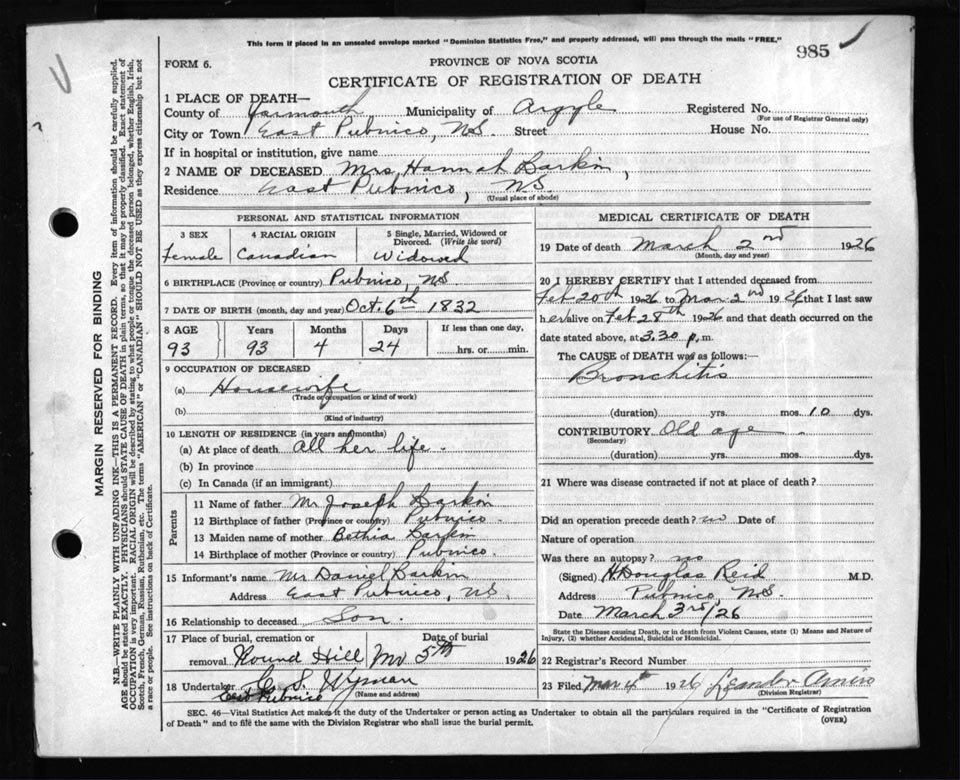 This form if placed in an unsealed envelope marked "Dominion Statistics Free," and properly addressed, will pass through the mails "FREE."
985
FORM 6.
PROVINCE OF NOVA SCOTIA
CERTIFICATE OF REGISTRATION OF DEATH
1 PLACE OF DEATH—
County of Yarmouth Municipality of Argyle Registered No.
(For use of Registrar General only)
City or Town East Pubnico, N.S. Street House No.
If in hospital or institution, give name
2 NAME OF DECEASED Mrs, Hannah Larkin,
Residence East Pubnico, NS.
(Usual place of abode)
PERSONAL AND STATISTICAL INFORMATION
3 SEX
Female
4 RACIAL ORIGIN
Canadian
5 Single, Married, Widowed or Divorced. (Write the word)
Widowed
6 BIRTHPLACE (Province or country) Pubnico, NS
7 DATE OF BIRTH (month, day and year) Oct. 6th 1832
8 AGE Years Months Days If less than one day,
93 93 4 24 hrs. or min.
9 OCCUPATION OF DECEASED
(a) Housewife
(Trade or occupation or kind of work)
(b)
(Kind of industry)
10 LENGTH OF RESIDENCE (in years and months)
(a) At place of death All her life.
(b) In province
(c) In Canada (if an immigrant)
Parents
11 Name of father Mr Joseph Larkin
12 Birthplace of father (Province or country) Pubnico.
13 Maiden name of mother Bethia Larkin
14 Birthplace of mother (Province or country) Pubnico.
15 Informant's name Mr Daniel Larkin
Address East Pubnico, NS.
16 Relationship to deceased Son.
17 Place of burial, cremation or Date of burial
removal Round Hill Mr 5th 1926
18 Undertaker C. S. Wyman
East Pubnico (Name and address)
MEDICAL CERTIFICATE OF DEATH
19 Date of death March 2nd 1926
(Month, day and year)
20 I HEREBY CERTIFY that I attended deceased from
Feb 20th 1926 to Mar 2nd 1926 that I last saw
her alive on Feb 28th 1926 and that death occurred on the
date stated above, at 3.30 p.m.
The CAUSE of DEATH was as follows:
Bronchitis
(duration) yrs. mos. 10 dys.
CONTRIBUTORY Old age
(Secondary)
(duration) yrs. mos. dys.
21 Where was disease contracted if not at place of death?
Did an operation precede death? no Date of
Nature of operation
Was there an autopsy? no
(Signed) H Douglas Reid M.D.
Address Pubnico, N.S.
Date March 3rd/26
State the Disease causing Death, or in death from Violent Causes, state (1) Means and Nature of
Injury, (2) whether Accidental, Suicidal or Homicidal.
22 Registrar's Record Number
23 Filed Mar 4th 1926 Leander Amiro
(Division Registrar)
SEC. 46—Vital Statistics Act makes it the duty of the Undertaker or person acting as Undertaker to obtain all the particulars required in the "Certificate of Registration
of Death" and to file the same with the Division Registrar who shall issue the burial permit.
(OVER)
MARGIN RESERVED FOR BINDING
N.B.—WRITE PLAINLY WITH UNFADING INK—THIS IS A PERMANENT RECORD. Every item of information should be carefully supplied.
AGE should be stated EXACTLY. PHYSICIANS should STATE CAUSE OF DEATH in plain terms, so that it may be properly classified. Exact statement of
OCCUPATION is very important. RACIAL ORIGIN will be described by stating to what people or tongue the deceased person belonged, whether English, Irish,
Scotch, French, German, Russian, Ruthenian, etc. The terms "AMERICAN" or "CANADIAN" SHOULD NOT BE USED as they express citizenship but not
a race or people. See instructions on back of Certificate.